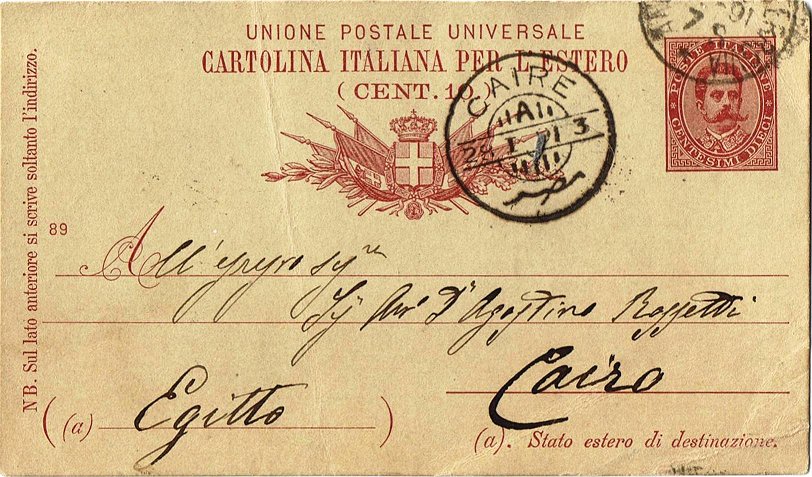 UNIONE POSTALE UNIVERSALE
CARTOLINA ITALIANA PER L'ESTERO
(CENT. 10)
POSTE ITALIANE
CENTESIMI DIECI
CAIRE
A
28 I 91 3
مصر
NB. Sul lato anteriore si scrive soltanto l'indirizzo.
89
All'
D'Agostino Rossetti
Cairo
(a) Egitto
(a). Stato estero di destinazione.